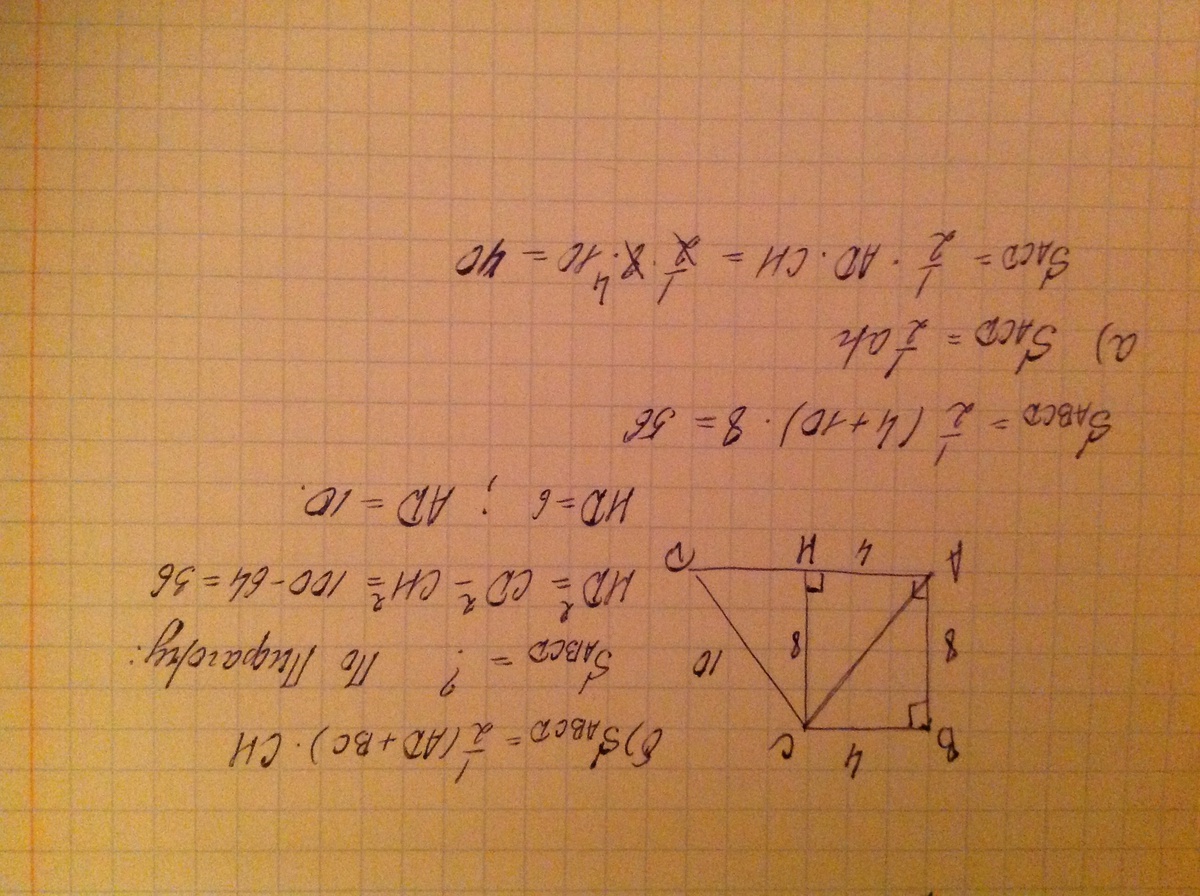 B 4 C
8 8 10
A 4 H D
б) S_ABCD = 1/2 (AD + BC) · CH
S_ABCD = ? По Пифагору:
HD² = CD² - CH² = 100 - 64 = 36
HD = 6 ; AD = 10.
S_ABCD = 1/2 (4 + 10) · 8 = 56
а) S_ACD = 1/2 ah
S_ACD = 1/2 · AD · CH = 1/2 · 8 4 · 10 = 40